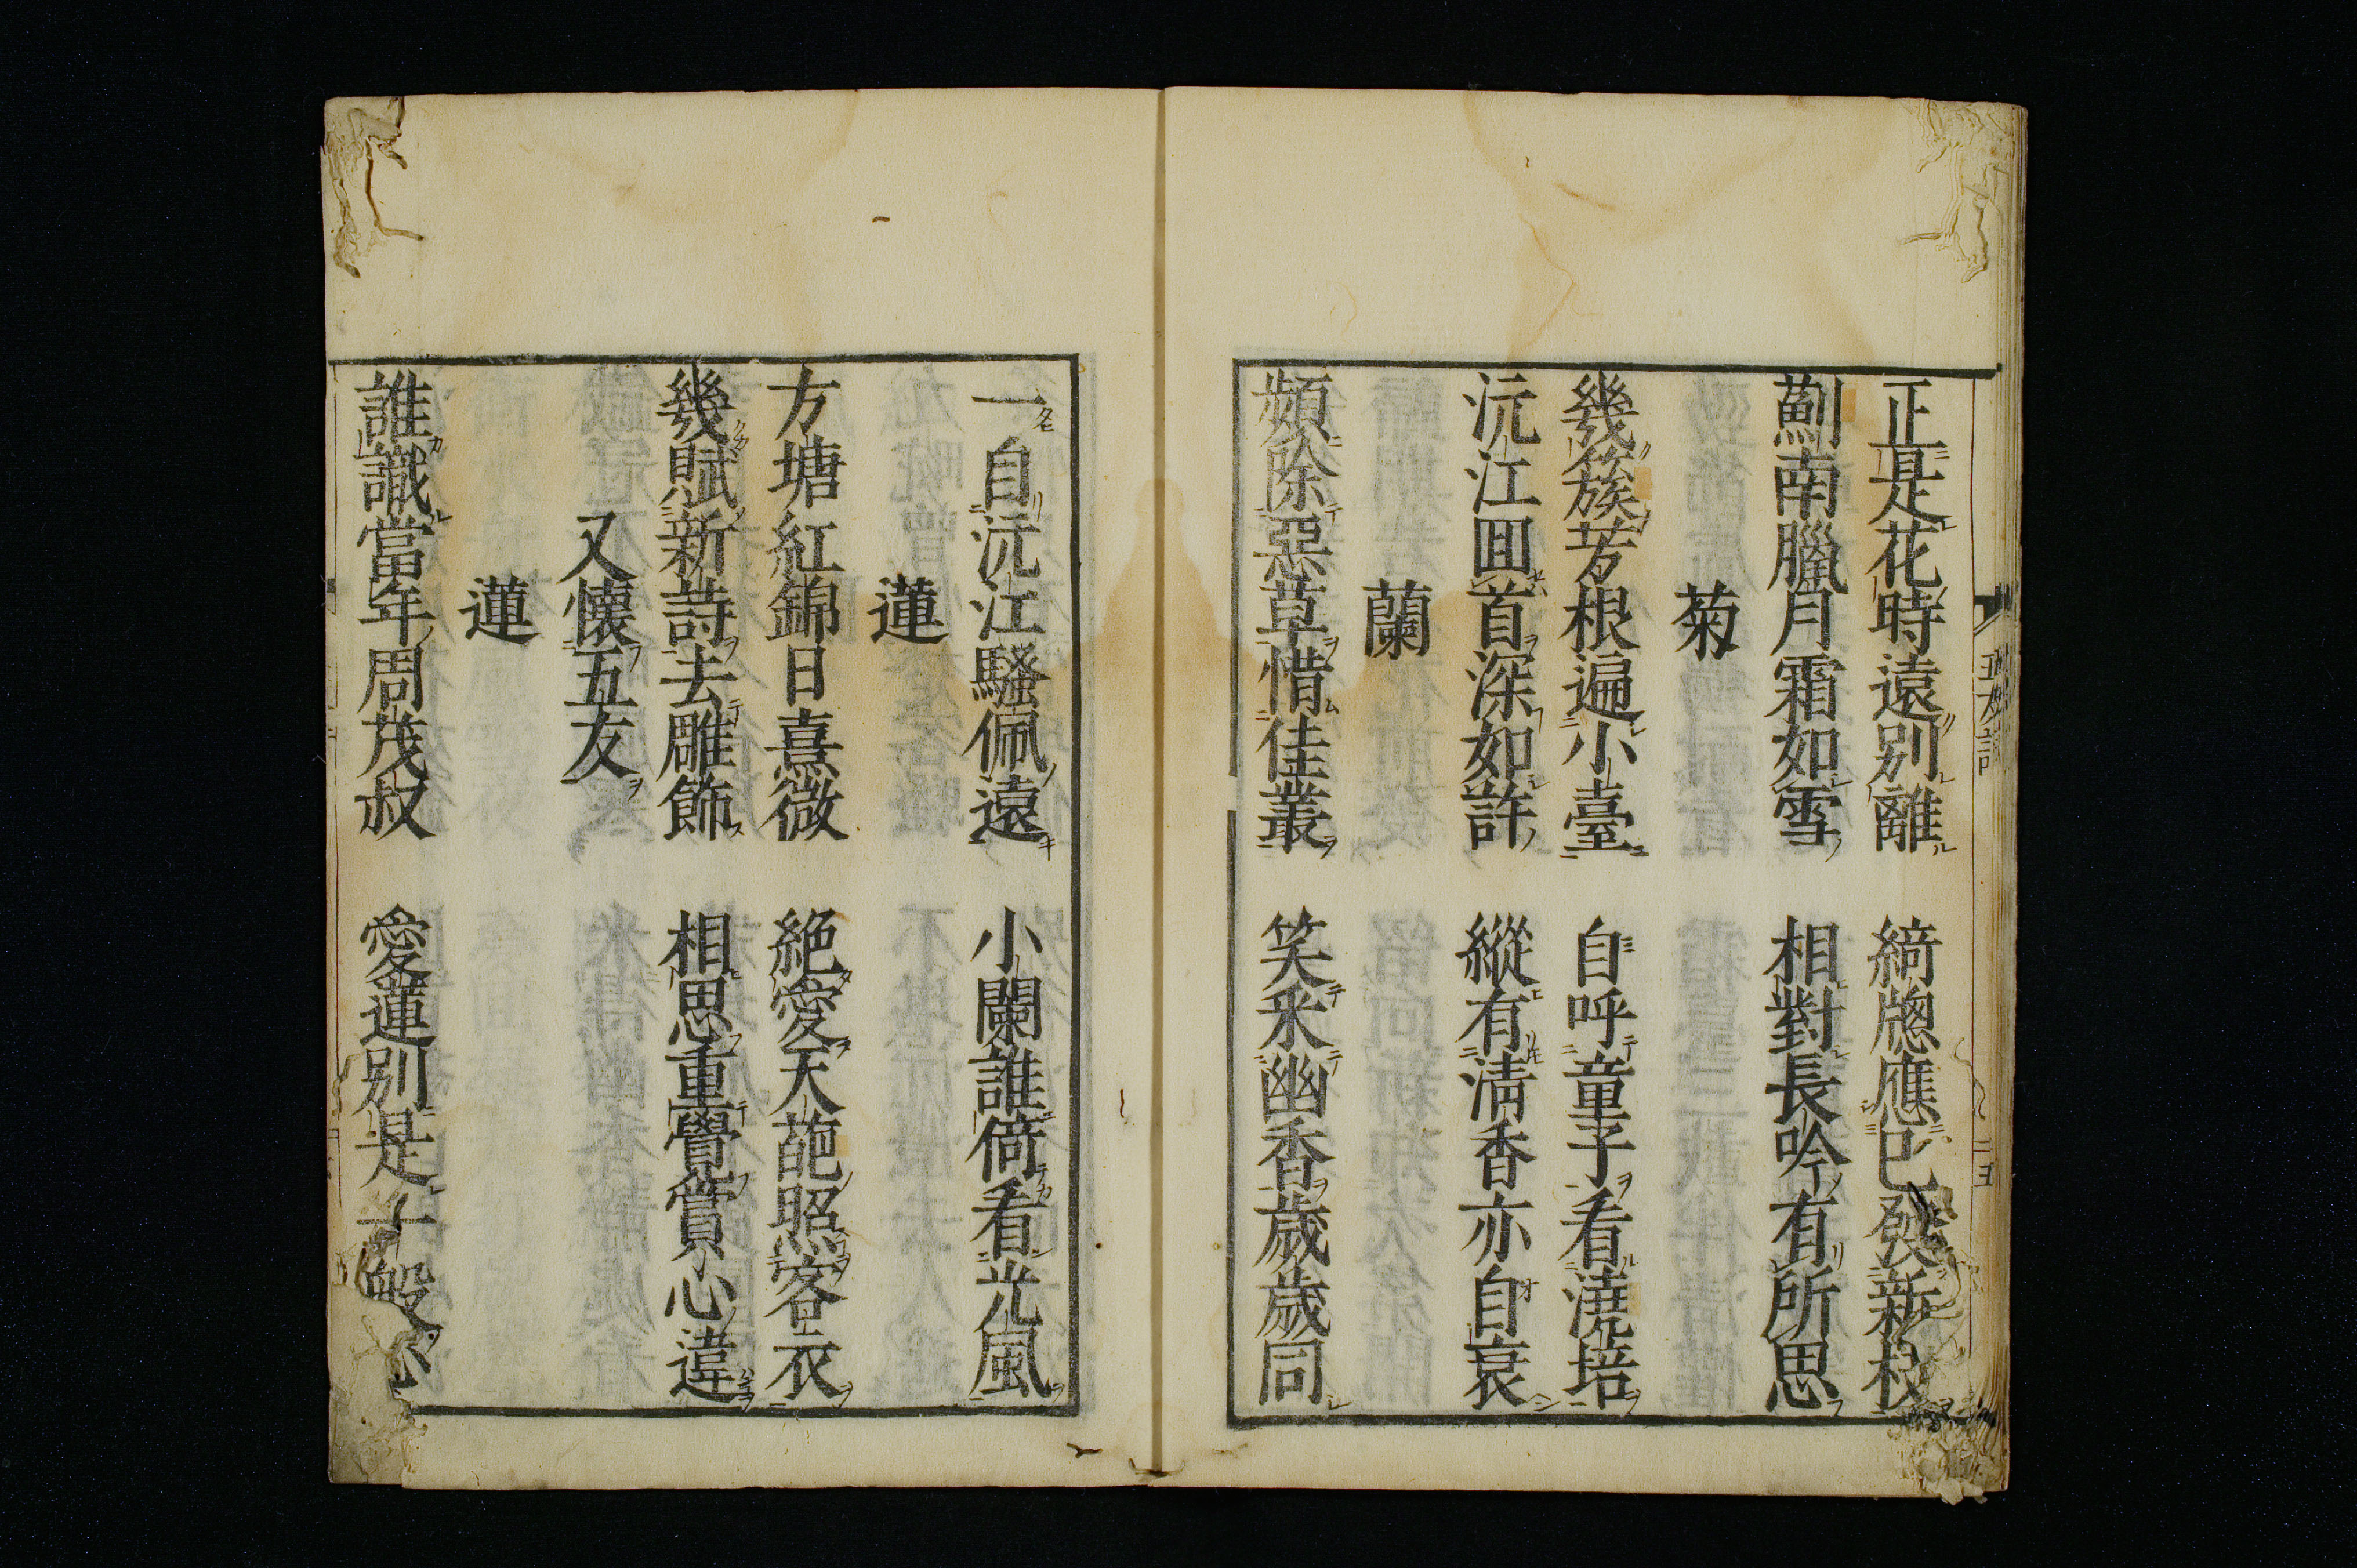 正是花時遠別離　綺牕應已發新枝
薊南臘月霜如雪　相對長吟有所思
菊
幾簇芳根遍小臺　自呼童子看澆培
沅江囬首深如許　縱有淸香亦自哀
蘭
頻除惡草惜佳叢　笑釆幽香歲歲同
一自沅江騷佩遠　小闌誰倚看光風
蓮
方塘紅錦日熹微　絕愛天葩照客衣
幾賦新詩去雕飾　相思重覺賞心違
又懷五友
蓮
誰識當年周茂叔　愛蓮別是十般心